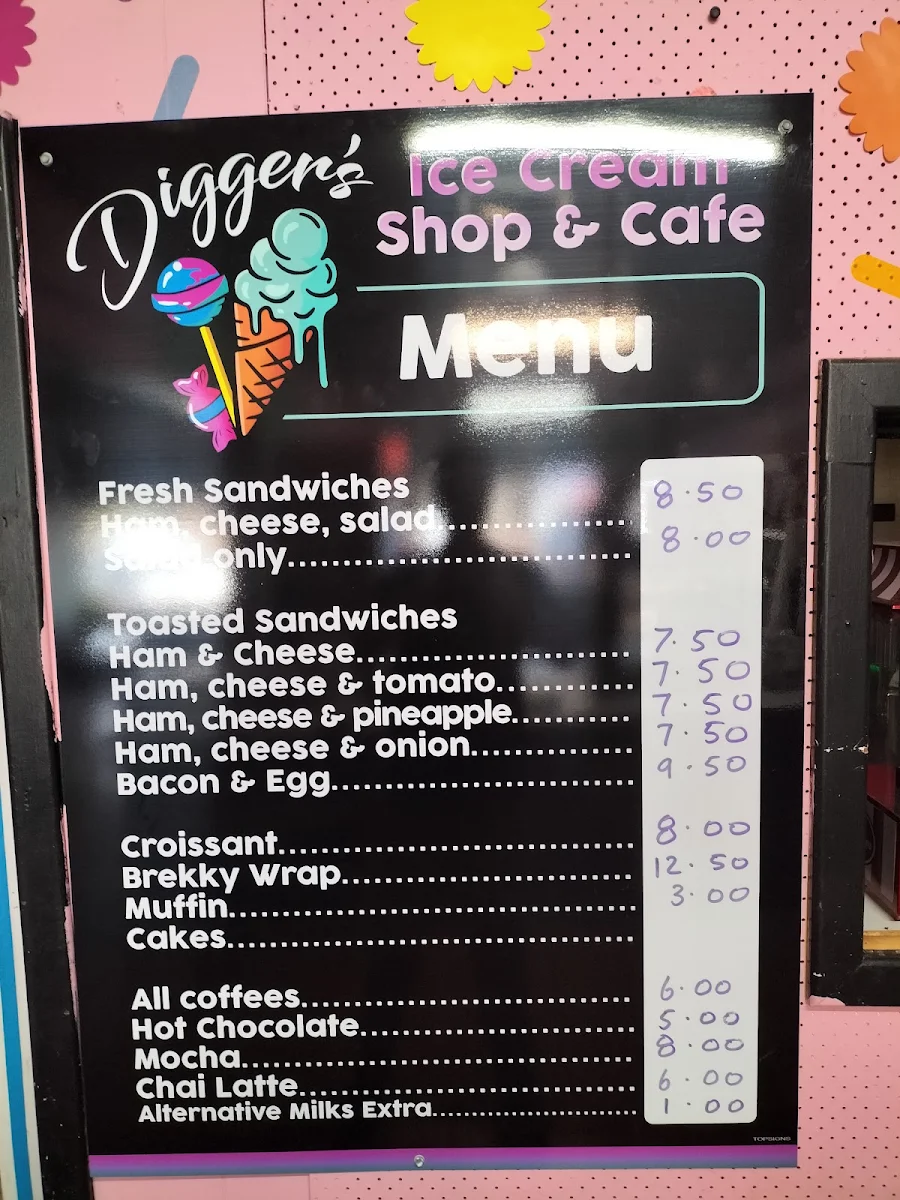 Digger's
Ice Cream
Shop & Cafe
Menu
Fresh Sandwiches
Ham, cheese, salad.......................... 8.50
Salad only.......................................... 8.00
Toasted Sandwiches
Ham & Cheese................................... 7.50
Ham, cheese & tomato................. 7.50
Ham, cheese & pineapple............... 7.50
Ham, cheese & onion..................... 7.50
Bacon & Egg...................................... 9.50
Croissant............................................ 8.00
Brekky Wrap..................................... 12.50
Muffin.................................................. 3.00
Cakes...................................................
All coffees.......................................... 6.00
Hot Chocolate................................... 5.00
Mocha................................................. 8.00
Chai Latte.......................................... 6.00
Alternative Milks Extra......................... 1.00
TOPSIGNS